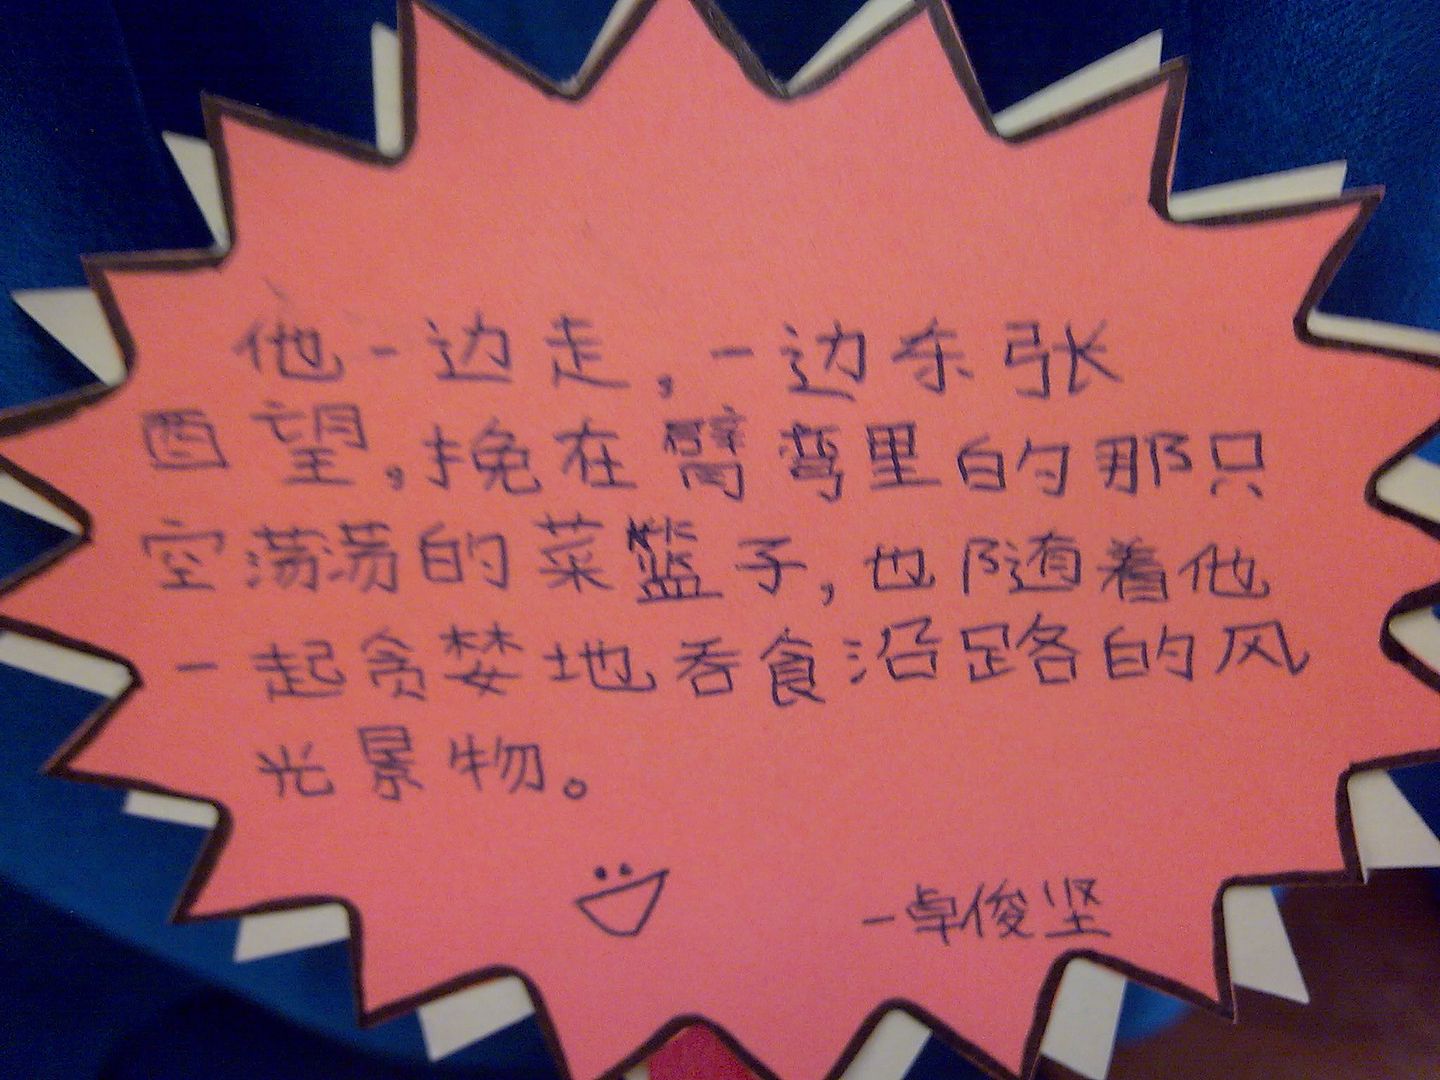 他一边走，一边东张
西望，挽在臂弯里的那只
空荡荡的菜篮子，也随着他
一起贪婪地吞食沿路的风
光景物。
—卓俊坚